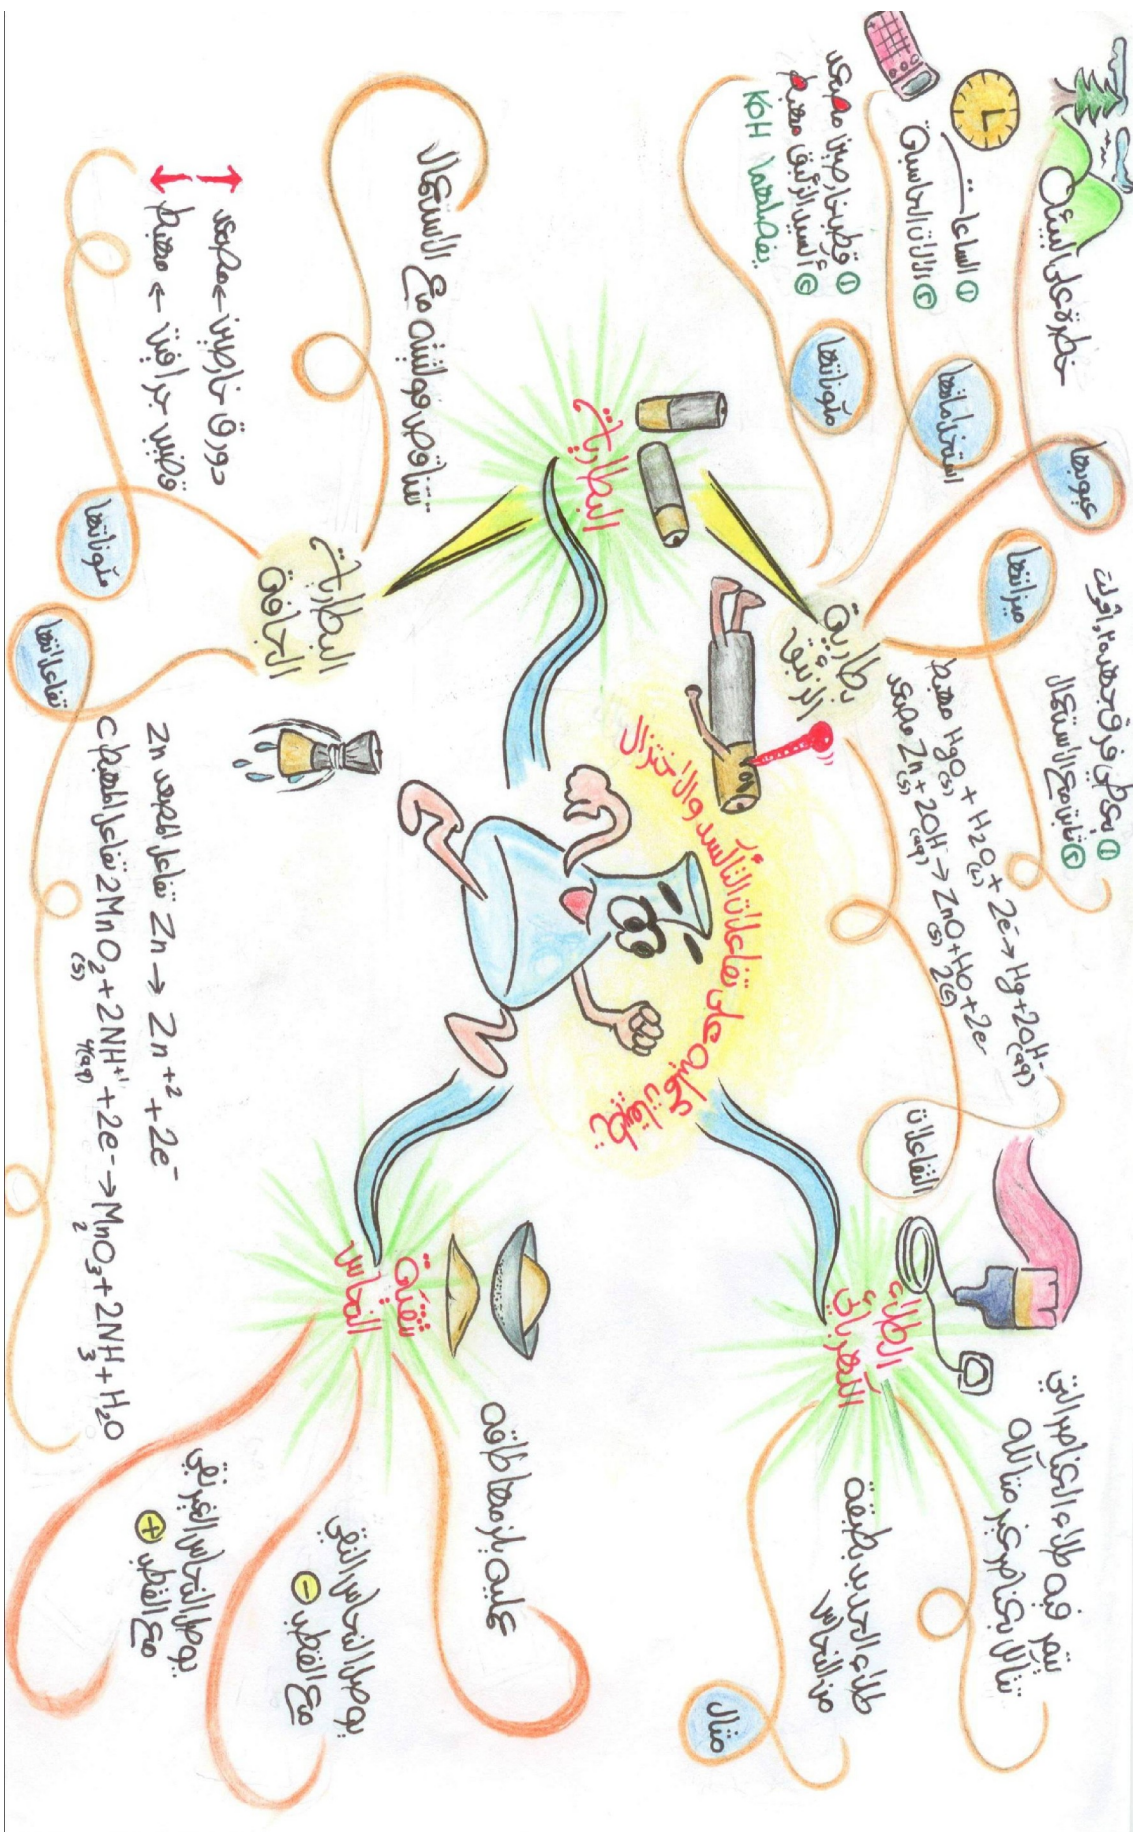 تطبيقات عملية على تفاعلات التأكسد والاختزال
البطاريات
بطارية
الزئبق
عيوبها
خطرة على البيئة
استخداماتها
① الساعات
② الآلات الحاسبة
مكوناتها
① قطب خارصين مصعد
② أكسيد الزئبق مهبط
يفصلهما KOH
ميزاتها
① يعطي فرق جهد ١,٣ فولت
② ثابت مع الاستعمال
التفاعلات
مهبط HgO(s) + H2O(L) + 2e- → Hg + 2OH-(aq)
مصعد Zn(s) + 2OH-(aq) → ZnO(s) + H2O(G) + 2e-
البطاريات
الجافة
تتناقص فولتيته مع الاستعمال
مكوناتها
دورق خارصين ← مصعد
قضيب جرافيت ← مهبط
تفاعلاتها
Zn تفاعل المصعد Zn → Zn+2 + 2e-
C تفاعل المهبط 2MnO2(s) + 2NH4+1(aq) + 2e- → Mn2O3 + 2NH3 + H2O
الطلاء
الكهربائي
يتم فيه طلاء العناصر التي
تتآكل بعناصر غير متآكلة
طلاء الحديد بطبقة
من النحاس
مثال
تنقية
النحاس
عملية يلزمها طاقة
يوصل النحاس النقي
مع القطب −
يوصل النحاس الغير نقي
مع القطب +